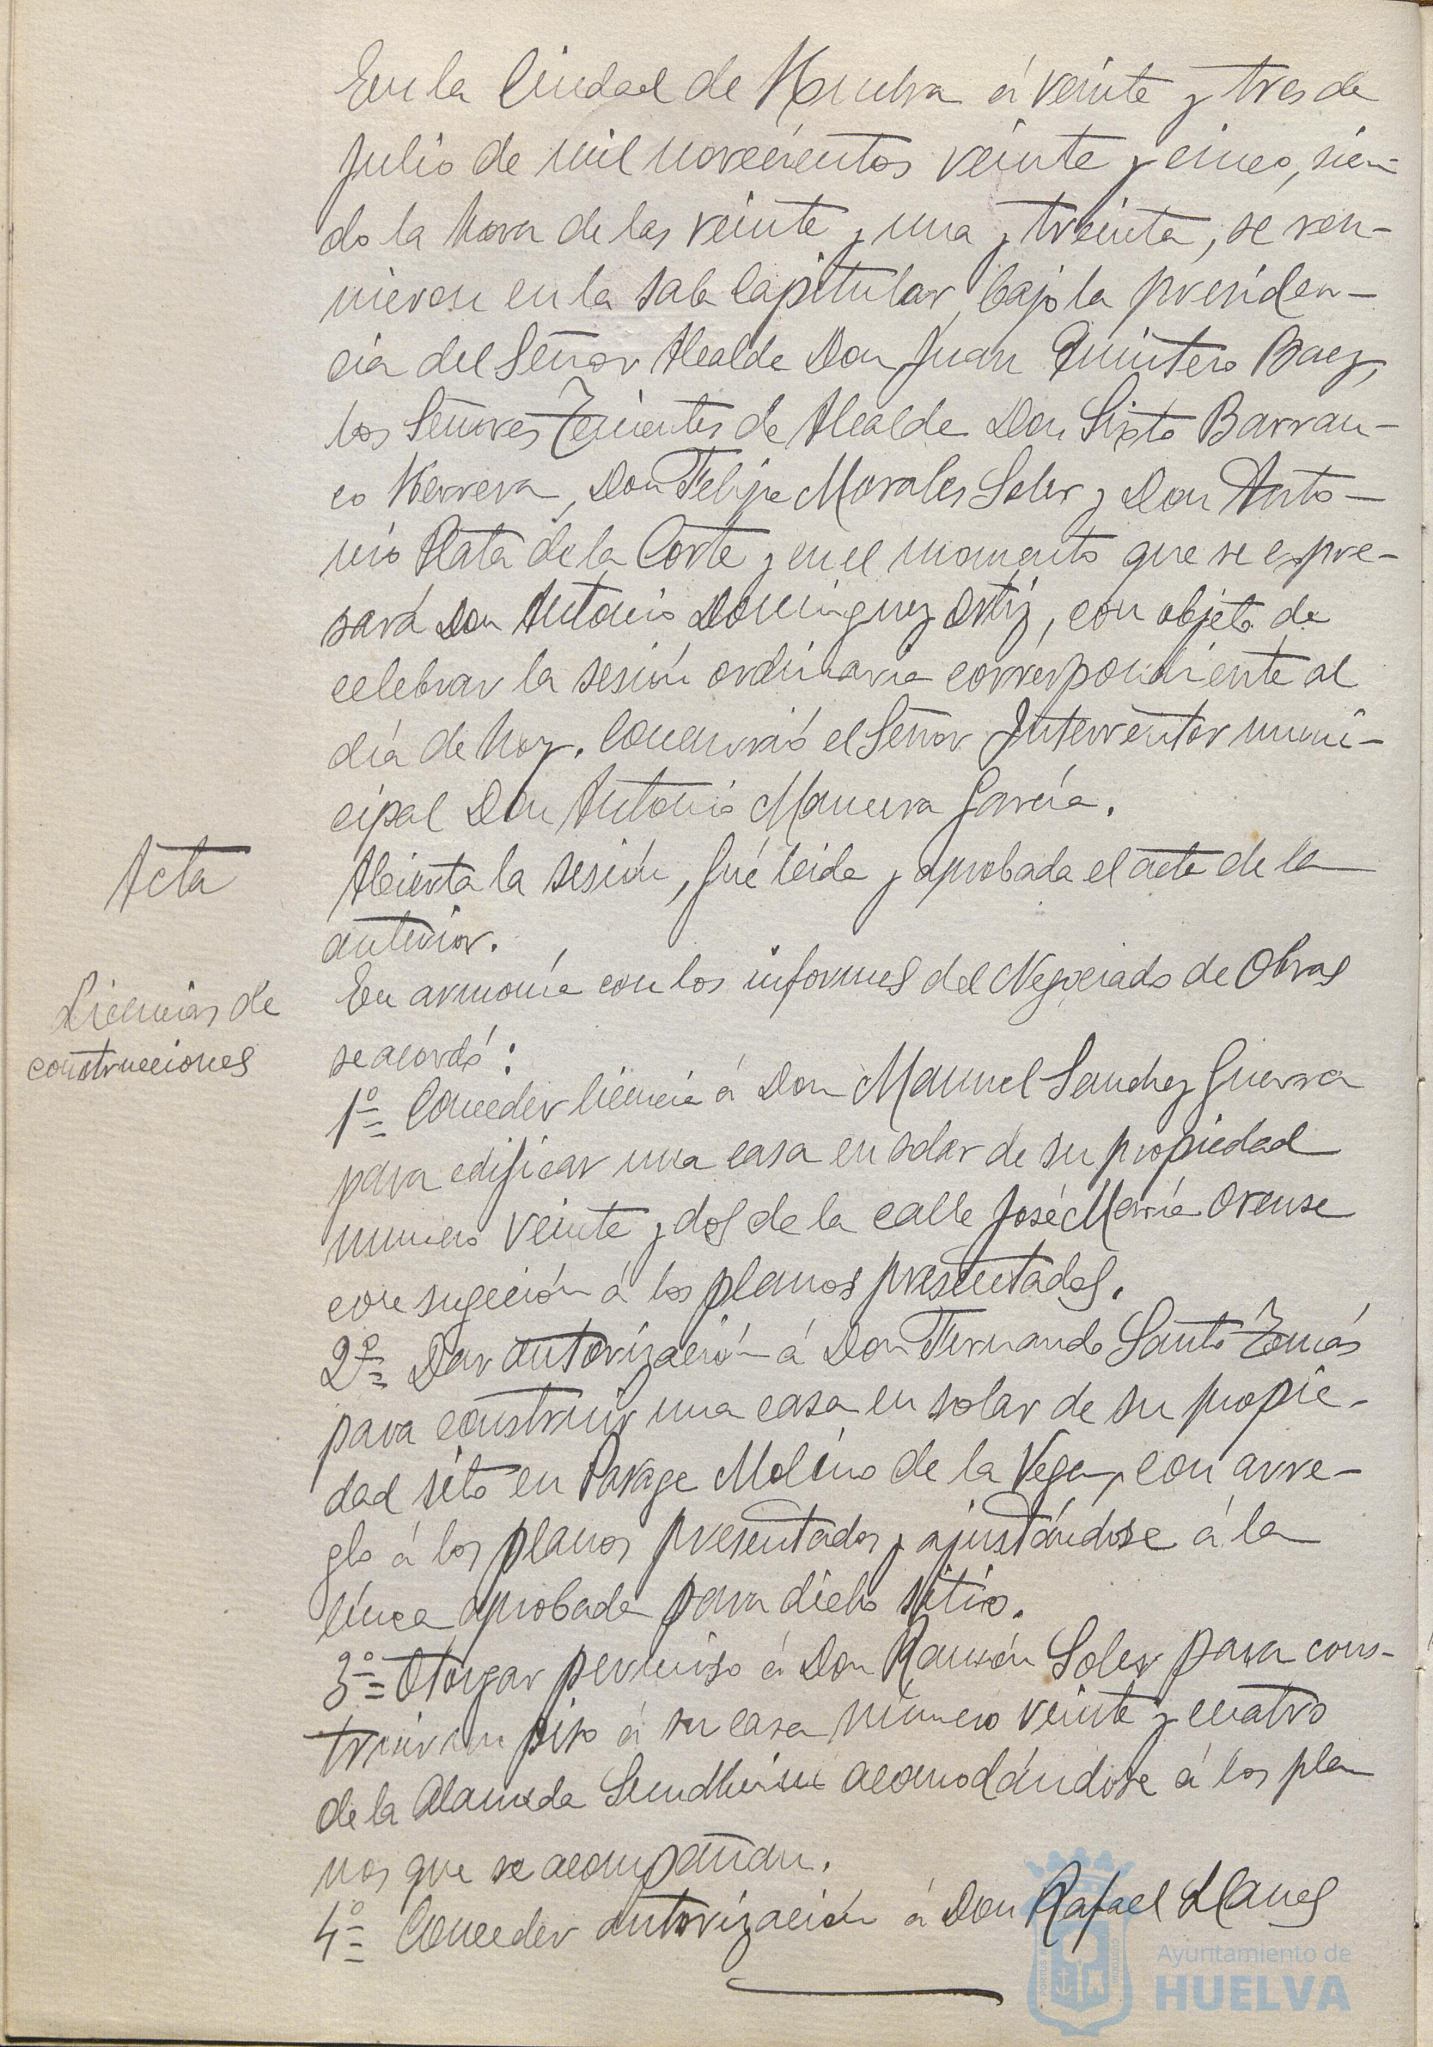 En la Ciudad de Huelva á veinte y tres de
Julio de mil novecientos veinte y cinco, sien-
do la hora de las veinte y una y treinta, se reu-
nieron en la sala Capitular, bajo la presiden-
cia del Señor Alcalde Don Juan Quintero Baez,
los Señores Tenientes de Alcalde Don Sixto Barran-
co Herrera, Don Felipe Morales Soler y Don Anto-
nio Plata de la Corte y en el momento que se expre-
sará Don Antonio Dominguez Ortiz, con objeto de
celebrar la sesión ordinaria correspondiente al
día de hoy. Concurrió el Señor Interventor muni-
cipal Don Antonio García.
Acta
Abierta la sesión, fué leida y aprobada el acta de la
anterior.
Licencias de
construcciones
En armonía con los informes del Negociado de Obras
se acordó:
1º= Conceder licencia á Don Manuel Sanchez Guerra
para edificar una casa en solar de su propiedad
número veinte y dos de la calle José María Orense
con sugeción á los planos presentados.
2º= Dar autorización á Don Fernando Santo Tomás
para construir una casa en solar de su propie-
dad sito en Parage Molino de la Vega, con arre-
glo á los planos presentados y ajustándose á la
línea aprobada para dicho sitio.
3º= Otorgar permiso á Don Ramón Soler para cons-
truir un piso á su casa número veinte y cuatro
de la Alameda Sundheim acomodándose á los pla
nos que se acompañan.
4º= Conceder autorización á Don Rafael Llanes
Ayuntamiento de
HUELVA